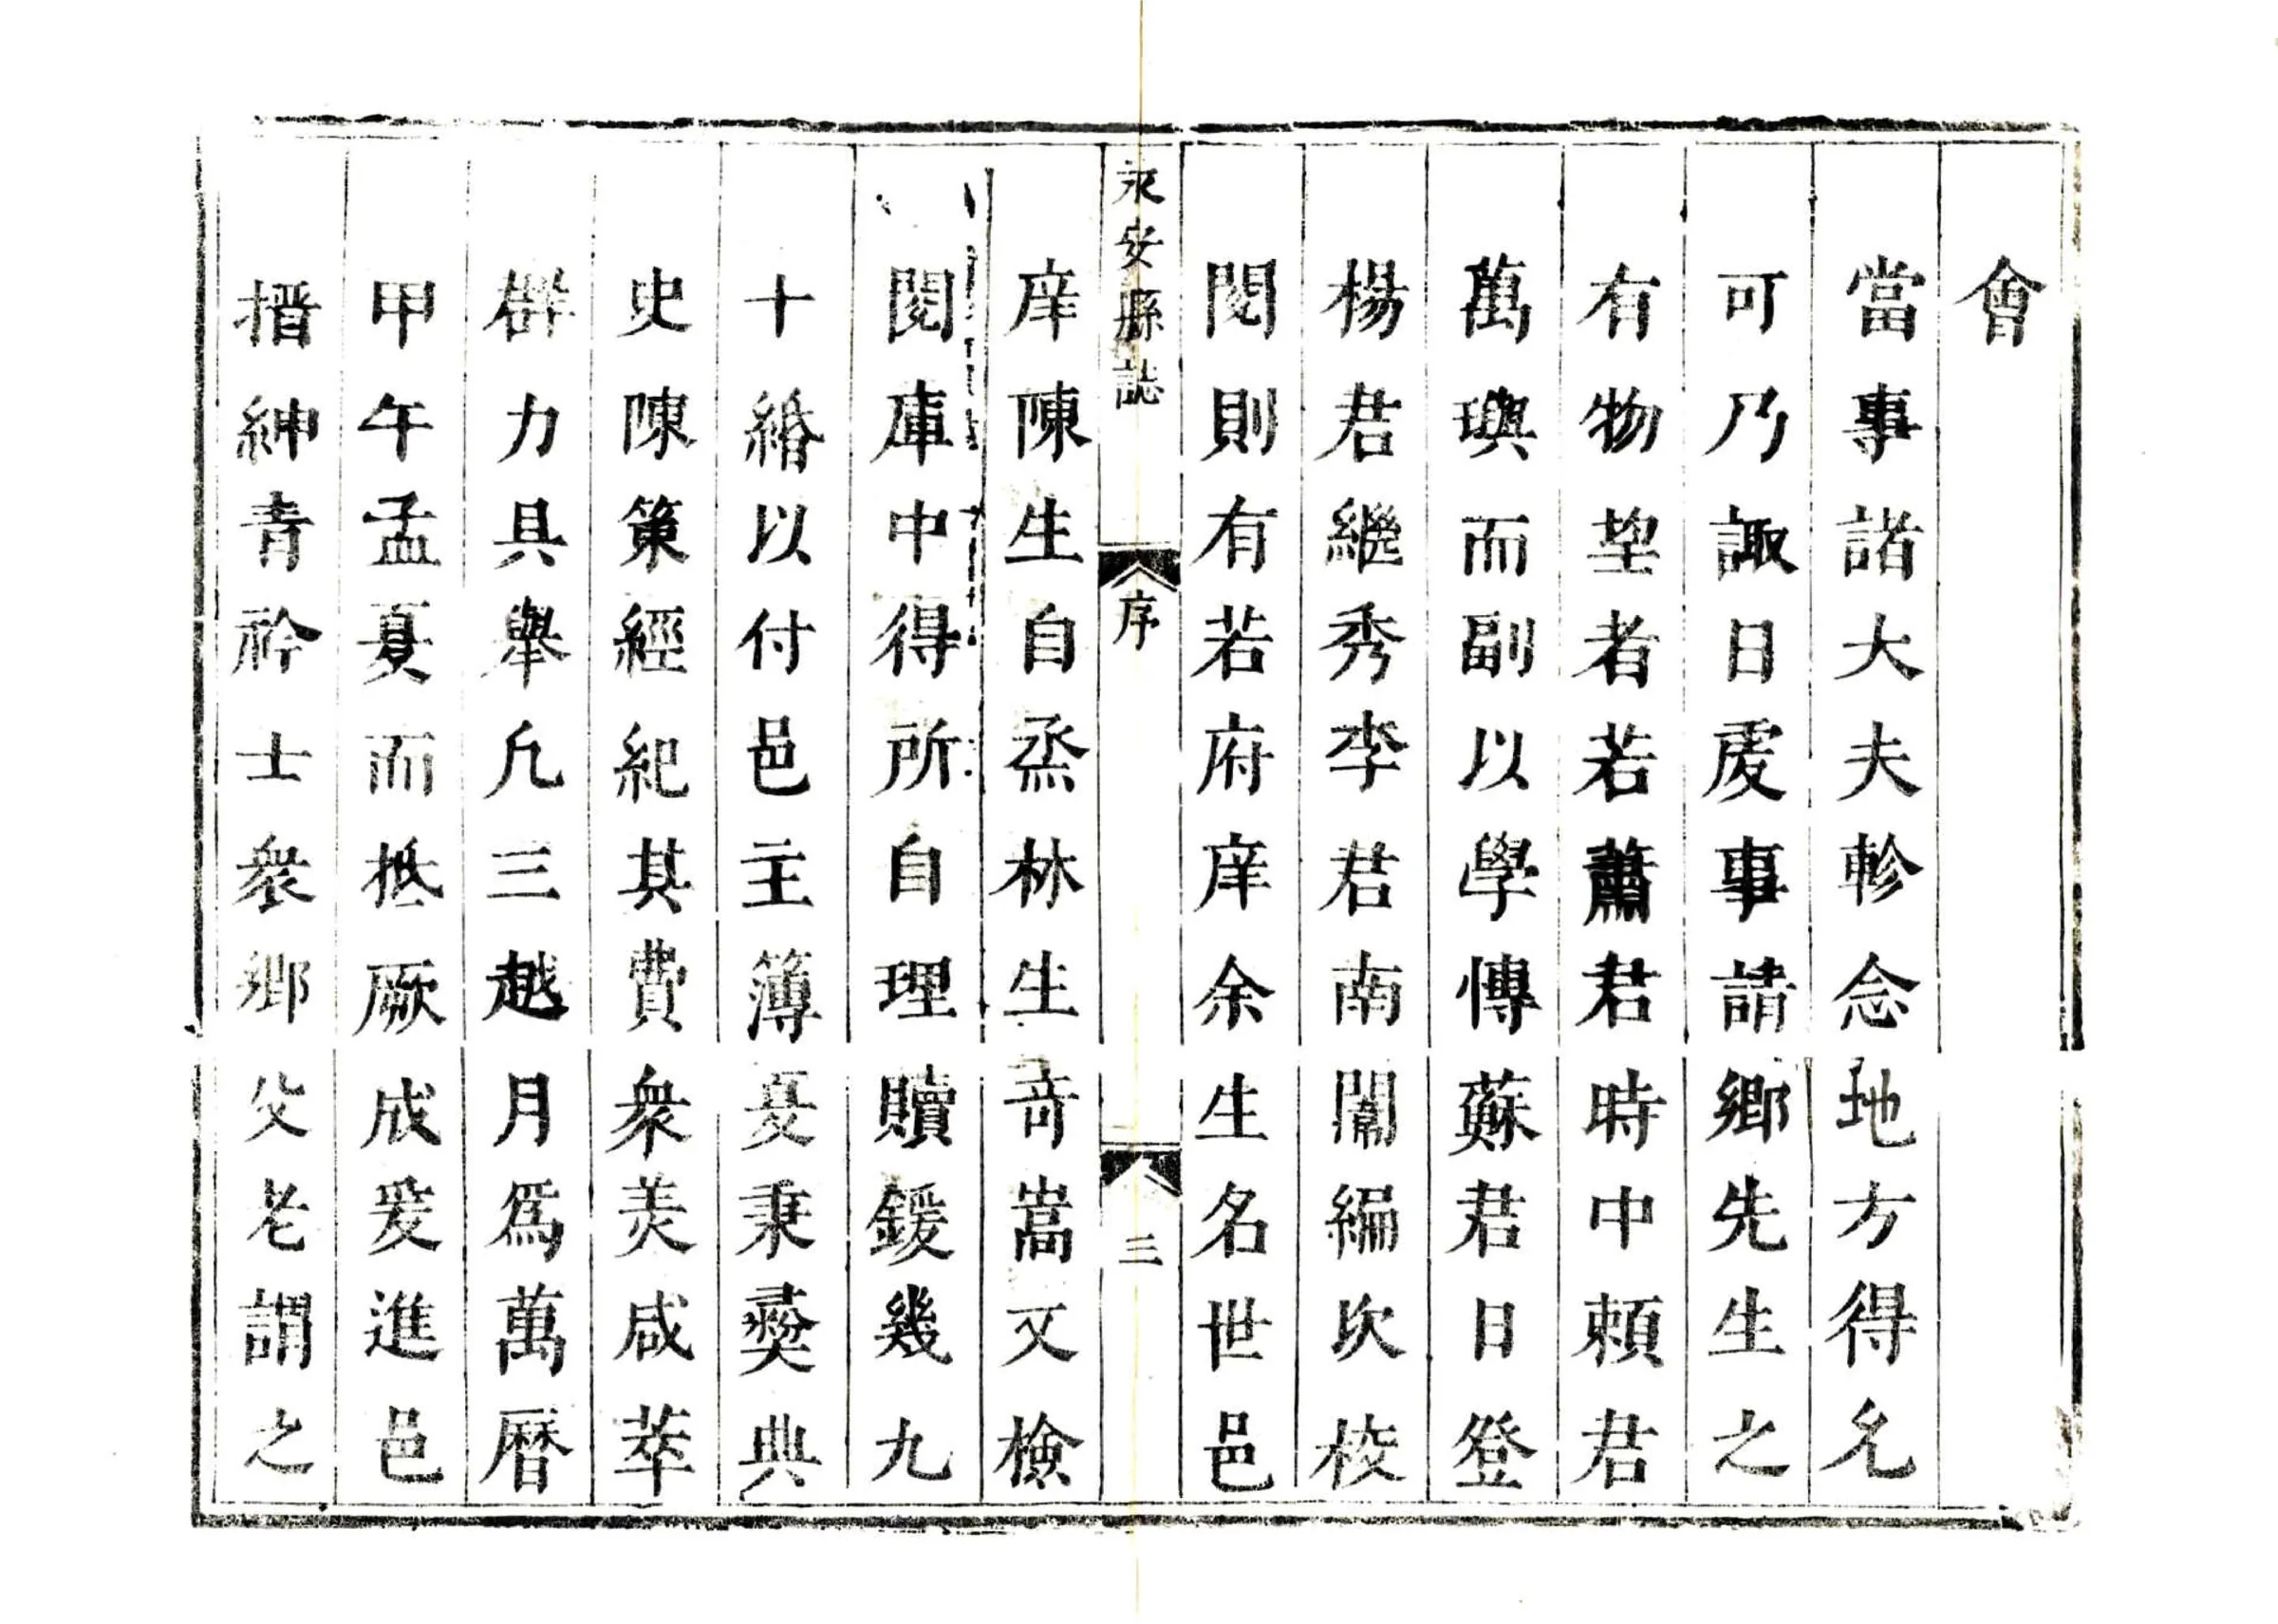 會
當事諸大夫軫念地方得允
可乃諏日處事請鄉先生之
有物望者若蕭君時中賴君
萬璵而副以學博蘇君日登
楊君繼秀李君南閣編次校
閱則有若府庠余生名世邑
永安縣誌
序
三
庠陳生自烝林生奇嵩又檢
閱庫中得所自理贖鍰幾九
十緡以付邑主簿夏秉彜典
史陳策經紀其費衆羙咸萃
群力具舉凢三越月爲萬曆
甲午孟夏而抵厥成爰進邑
搢紳青衿士衆鄉父老謂之